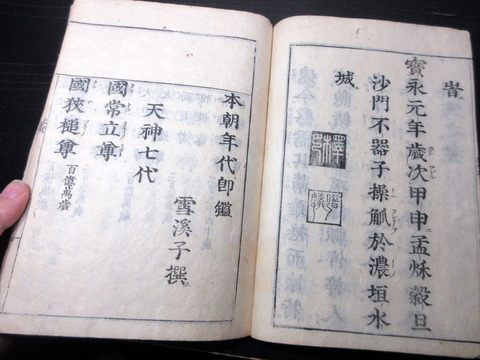 旹
寳永元年歲次甲申孟秌穀旦
沙門不器子操觚於濃垣水
城
本朝年代卽鑑
雪溪子撰
天神七代
國常立尊
國狹槌尊 百億萬歳